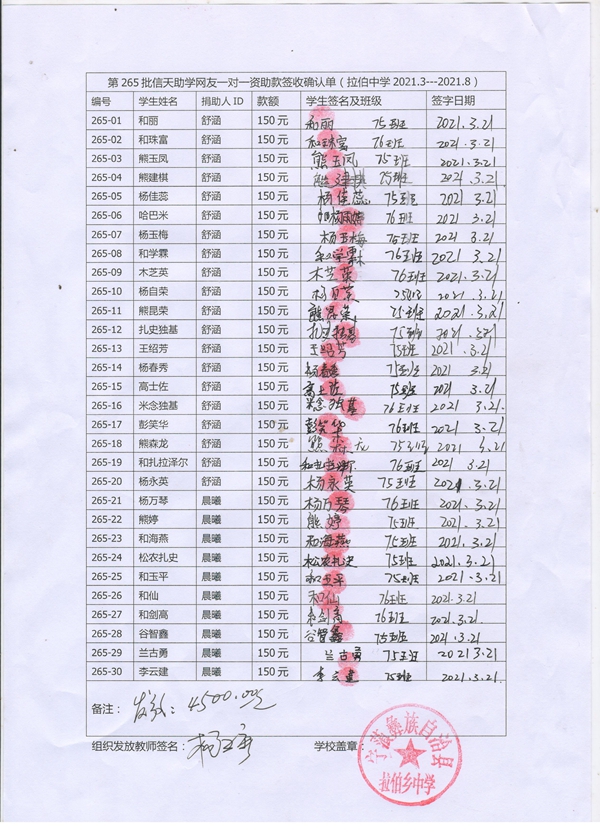 第 265 批信天助学网友一对一资助款签收确认单（拉伯中学 2021.3---2021.8）
编号 学生姓名 捐助人 ID 款额 学生签名及班级 签字日期
265-01 和丽 舒涵 150 元 和丽 75班 2021.3.21
265-02 和珠富 舒涵 150 元 和珠富 76班 2021.3.21
265-03 熊玉凤 舒涵 150 元 熊玉凤 75班 2021.3.21
265-04 熊建棋 舒涵 150 元 75班 2021.3.21
265-05 杨佳蕊 舒涵 150 元 杨佳蕊 75班 2021 3.21
265-06 哈巴米 舒涵 150 元 76班 2021.3.21
265-07 杨玉梅 舒涵 150 元 杨玉梅 75班 2021 3.21
265-08 和学霖 舒涵 150 元 和学霖 76班 2021 3.21
265-09 木芝英 舒涵 150 元 木芝英 76班 2021.3.21
265-10 杨自荣 舒涵 150 元 75班 2021.3.21
265-11 熊昆荣 舒涵 150 元 熊昆荣 75班 2021.3.21
265-12 扎史独基 舒涵 150 元 75班 2021.3.21
265-13 王绍芳 舒涵 150 元 王绍芳 75班 2021.3.21
265-14 杨春秀 舒涵 150 元 杨春秀 75班 2021 3.21
265-15 高士佐 舒涵 150 元 高士佐 75班 2021 3.21
265-16 米念独基 舒涵 150 元 米念独基 76班 2021 3.21.
265-17 彭笑华 舒涵 150 元 彭笑华 76班 2021.3.21
265-18 熊森龙 舒涵 150 元 75班 2021 3.21
265-19 和扎拉泽尔 舒涵 150 元 76班 2021 3.21
265-20 杨永英 舒涵 150 元 杨永英 75班 2021.3.21
265-21 杨万琴 晨曦 150 元 杨万琴 76班 2021.3.21
265-22 熊婷 晨曦 150 元 熊婷 75班 2021.3.21
265-23 和海燕 晨曦 150 元 和海燕 75班 2021.3.21
265-24 松农扎史 晨曦 150 元 松农扎史 75班 2021.3.21
265-25 和玉平 晨曦 150 元 和玉平 75班 2021.3.21
265-26 和仙 晨曦 150 元 和仙 76班 2021.3.21
265-27 和剑高 晨曦 150 元 和剑高 76班 2021.3.21
265-28 谷智鑫 晨曦 150 元 谷智鑫 75班 2021.3.21
265-29 兰古勇 晨曦 150 元 兰古勇 75班 2021 3.21
265-30 李云建 晨曦 150 元 李云建 75班 2021.3.21
备注： 发放：4500.00元
组织发放教师签名： 学校盖章：
宁蒗彝族自治县
拉伯乡中学